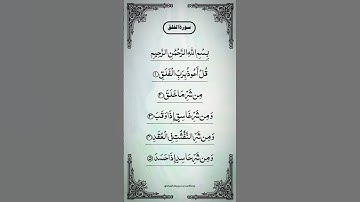 سورة الفلق
بِسْمِ اللهِ الرَّحْمٰنِ الرَّحِيْمِ
قُلْ اَعُوْذُ بِرَبِّ الْفَلَقِ ۝١
مِنْ شَرِّ مَا خَلَقَ ۝٢
وَمِنْ شَرِّ غَاسِقٍ اِذَا وَقَبَ ۝٣
وَمِنْ شَرِّ النَّفّٰثٰتِ فِی الْعُقَدِ ۝٤
وَمِنْ شَرِّ حَاسِدٍ اِذَا حَسَدَ ۝٥